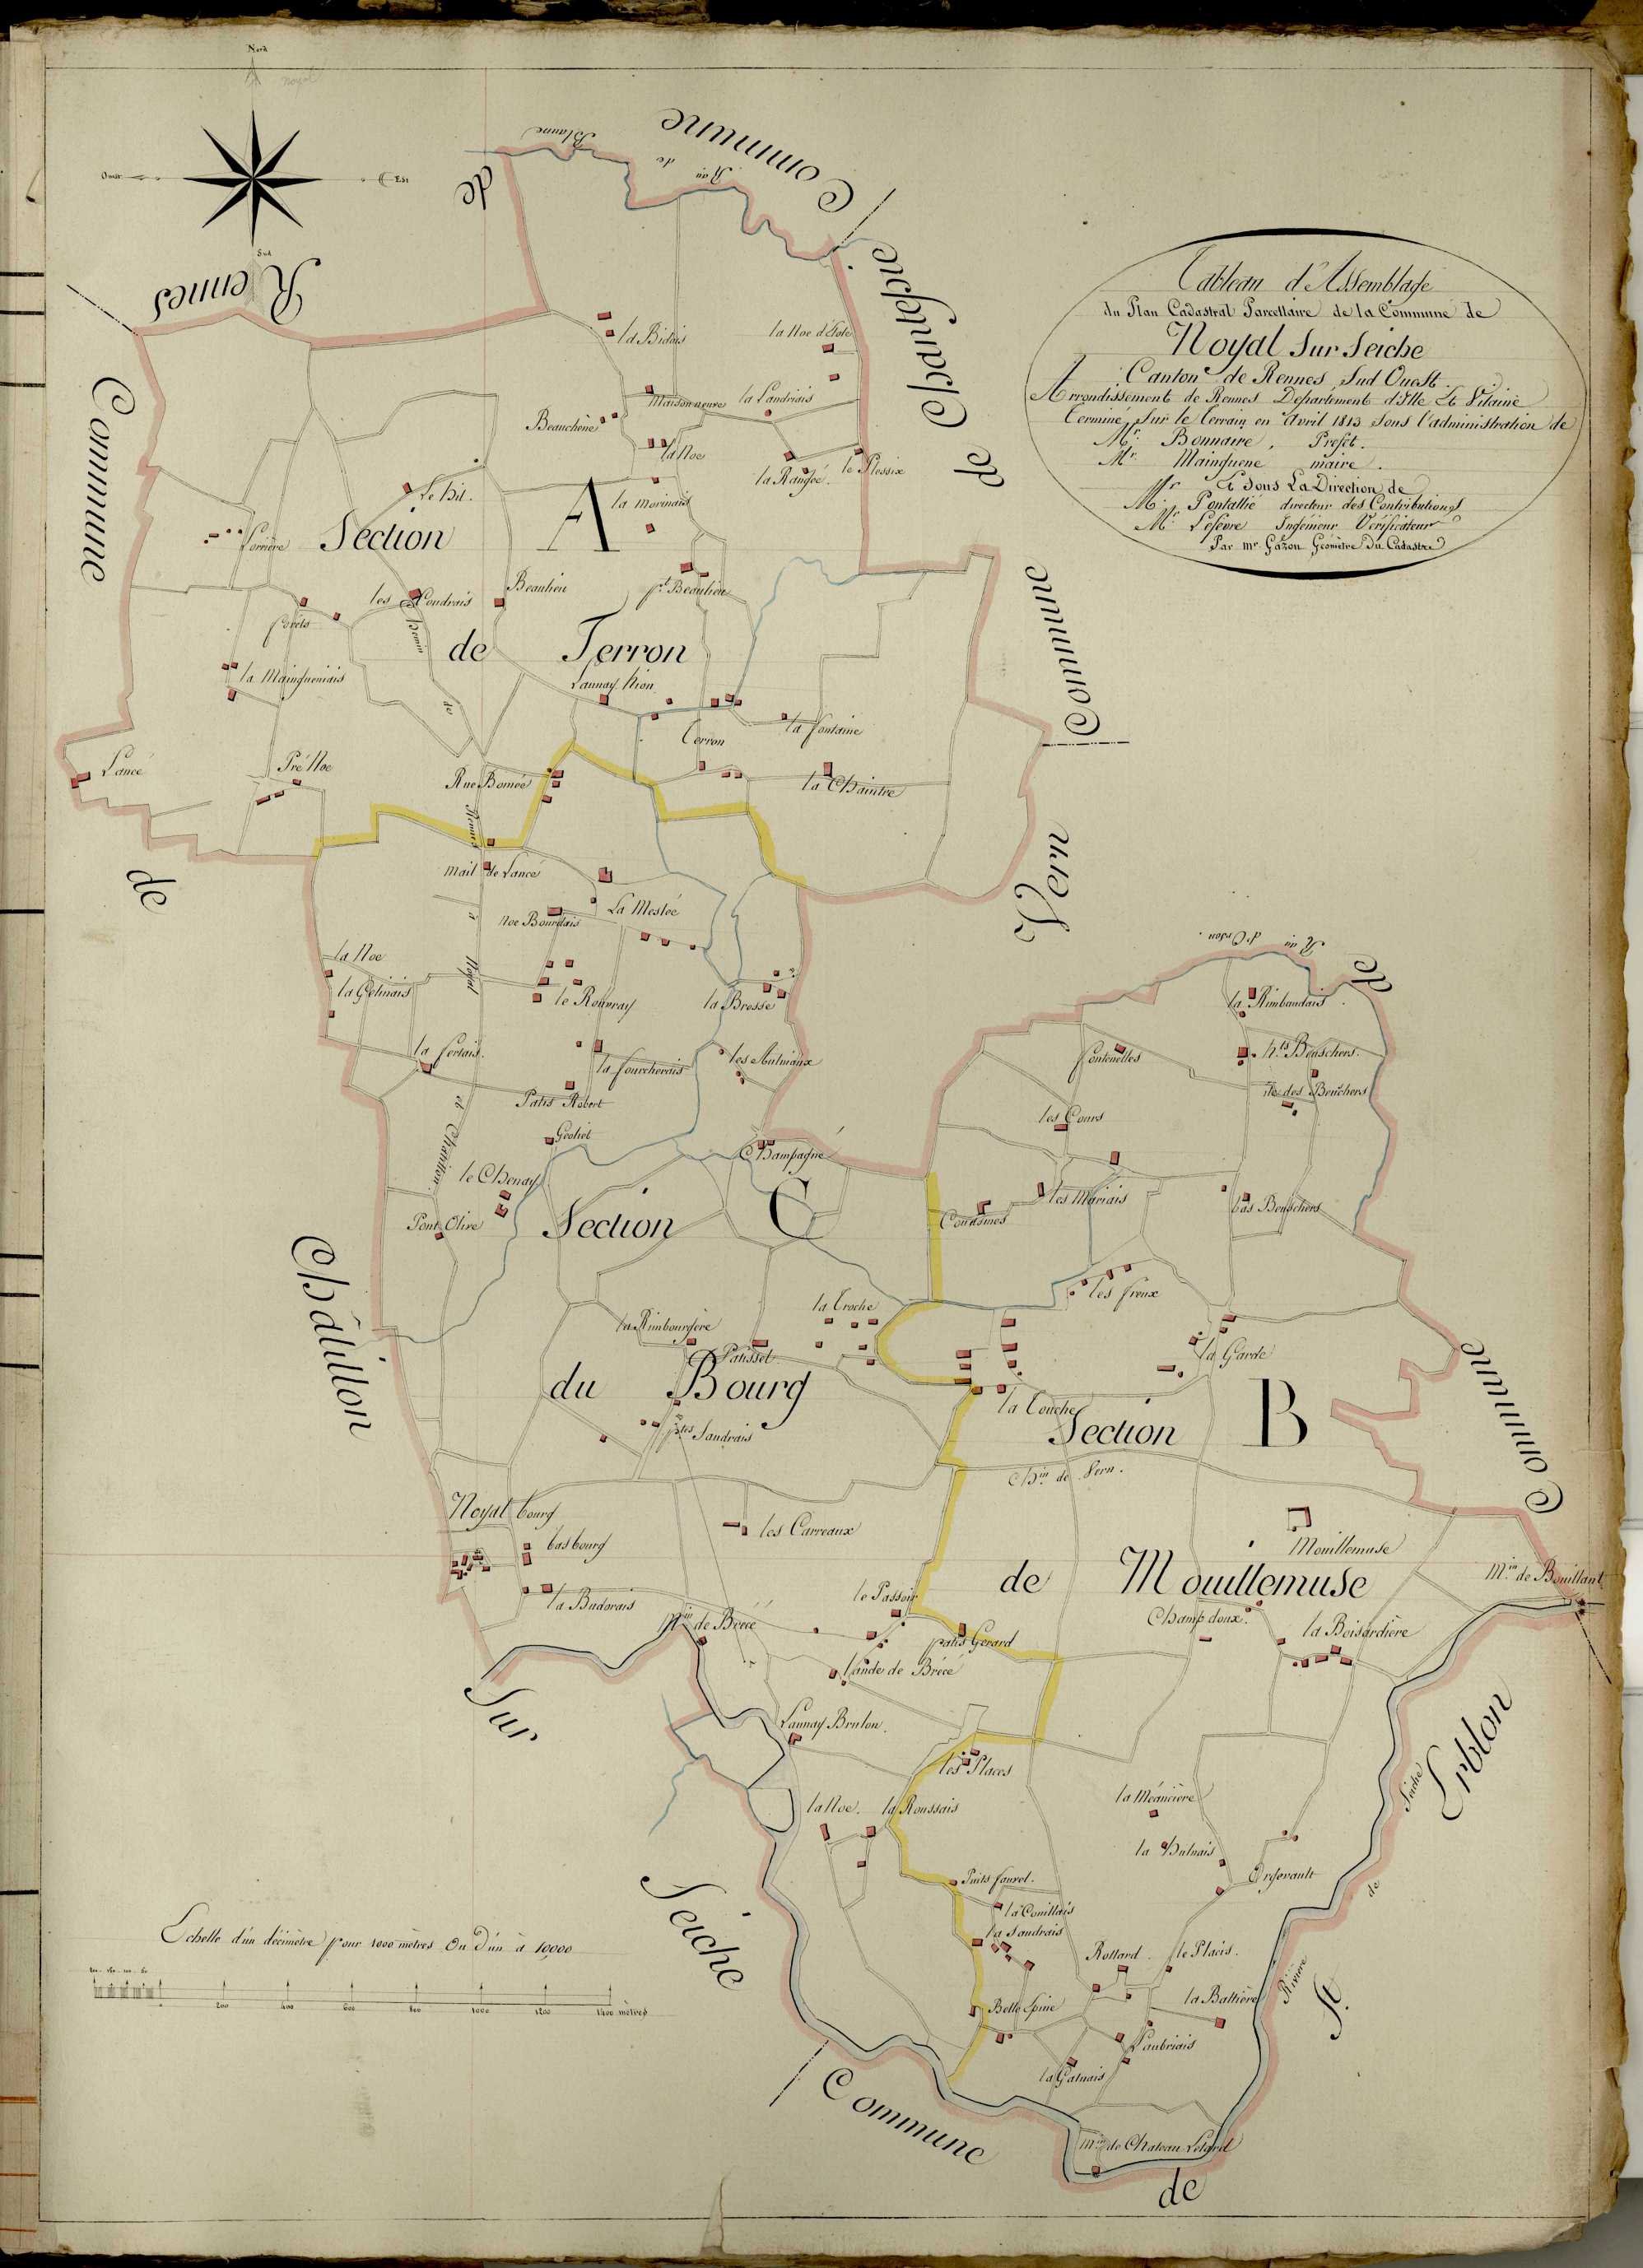 Nord
Ouest
Est
Sud
Tableau d'Assemblage
du Plan Cadastral Parcellaire de la Commune de
Noyal Sur Seiche
Canton de Rennes Sud Ouest.
Arrondissement de Rennes Département d'Ille Et Vilaine
Terminé Sur le Terrain en Avril 1813 Sous l'administration de
Mr. Bonnaire, Préfet.
Mr. Mainguené maire.
Et Sous La Direction de
Mr. Pontallié directeur des Contributions
Mr. Lefèvre Ingénieur Vérificateur
Par mr. Gazon Géomètre Du Cadastre
Commune
de
Rennes
Rau de Blanne
Commune
de Chantepie
Commune
de
Vern
Commune
de
Châtillon
Sur
Seiche
Rau d'Orson.
Commune
de
St.
Erblon
Rivière de Seiche
Section A
de Terron
la Bidois
la Noe
Maison neuve
la Landriais
Beauchêne
la Noe
la Rangée.
le Plessix
le Hil.
la Morinais
Ferrière
les Coudrais
Beaulieu
pt. Beaulieu
Forêts
la Maingueniais
Launay Hion
Terron
la fontaine
Lancé
Pré Noe
Rue Bomée
la Chaintre
Chemin de Rennes à Noyal et Châtillon.
Mail de Lancé
Noe Bourdais
La Mesloé
la Noe
la Gelinais
le Rouvray
la Brosse
la Fertais.
la Fourcherais
les Aulniaux
Patis Robert
Geoliet
Champagné
le Chenay
Pont Olive
Section C
du Bourg
la Rimbourgère
la Troche
Patisset
ptes Landrais
Noyal bourg
bas bourg
la Budorais
les Carreaux
Min de Brécé
le Passoir
patis Gérard
lande de Brécé
Launay Brulon.
les Places
la Noe.
la Roussais
la Rimbaudais
Fontenelles
hts Beuschers.
les Cours
Ile des Beuchers
les Mariais
Couasmes
bas Beuschers
les freux
la Garde
la Touche
Section B
Chin de Vern.
de Mouillemuse
Mouillemuse
Min de Bouillant
Champ doux.
la Boisardière
la Méancière
la Hulnais
Orgevault
Puits fauvel.
la Couillais
la Saudrais
Rollard
le Placis.
Belle Epine
la Baltière
Laubriais
la Gatuais
Min de Chateau Letard
Echelle d'un décimètre pour 1000 mètres Ou D'un à 10000
200 400 600 800 1000 1200 1400 mètres
Commune
de